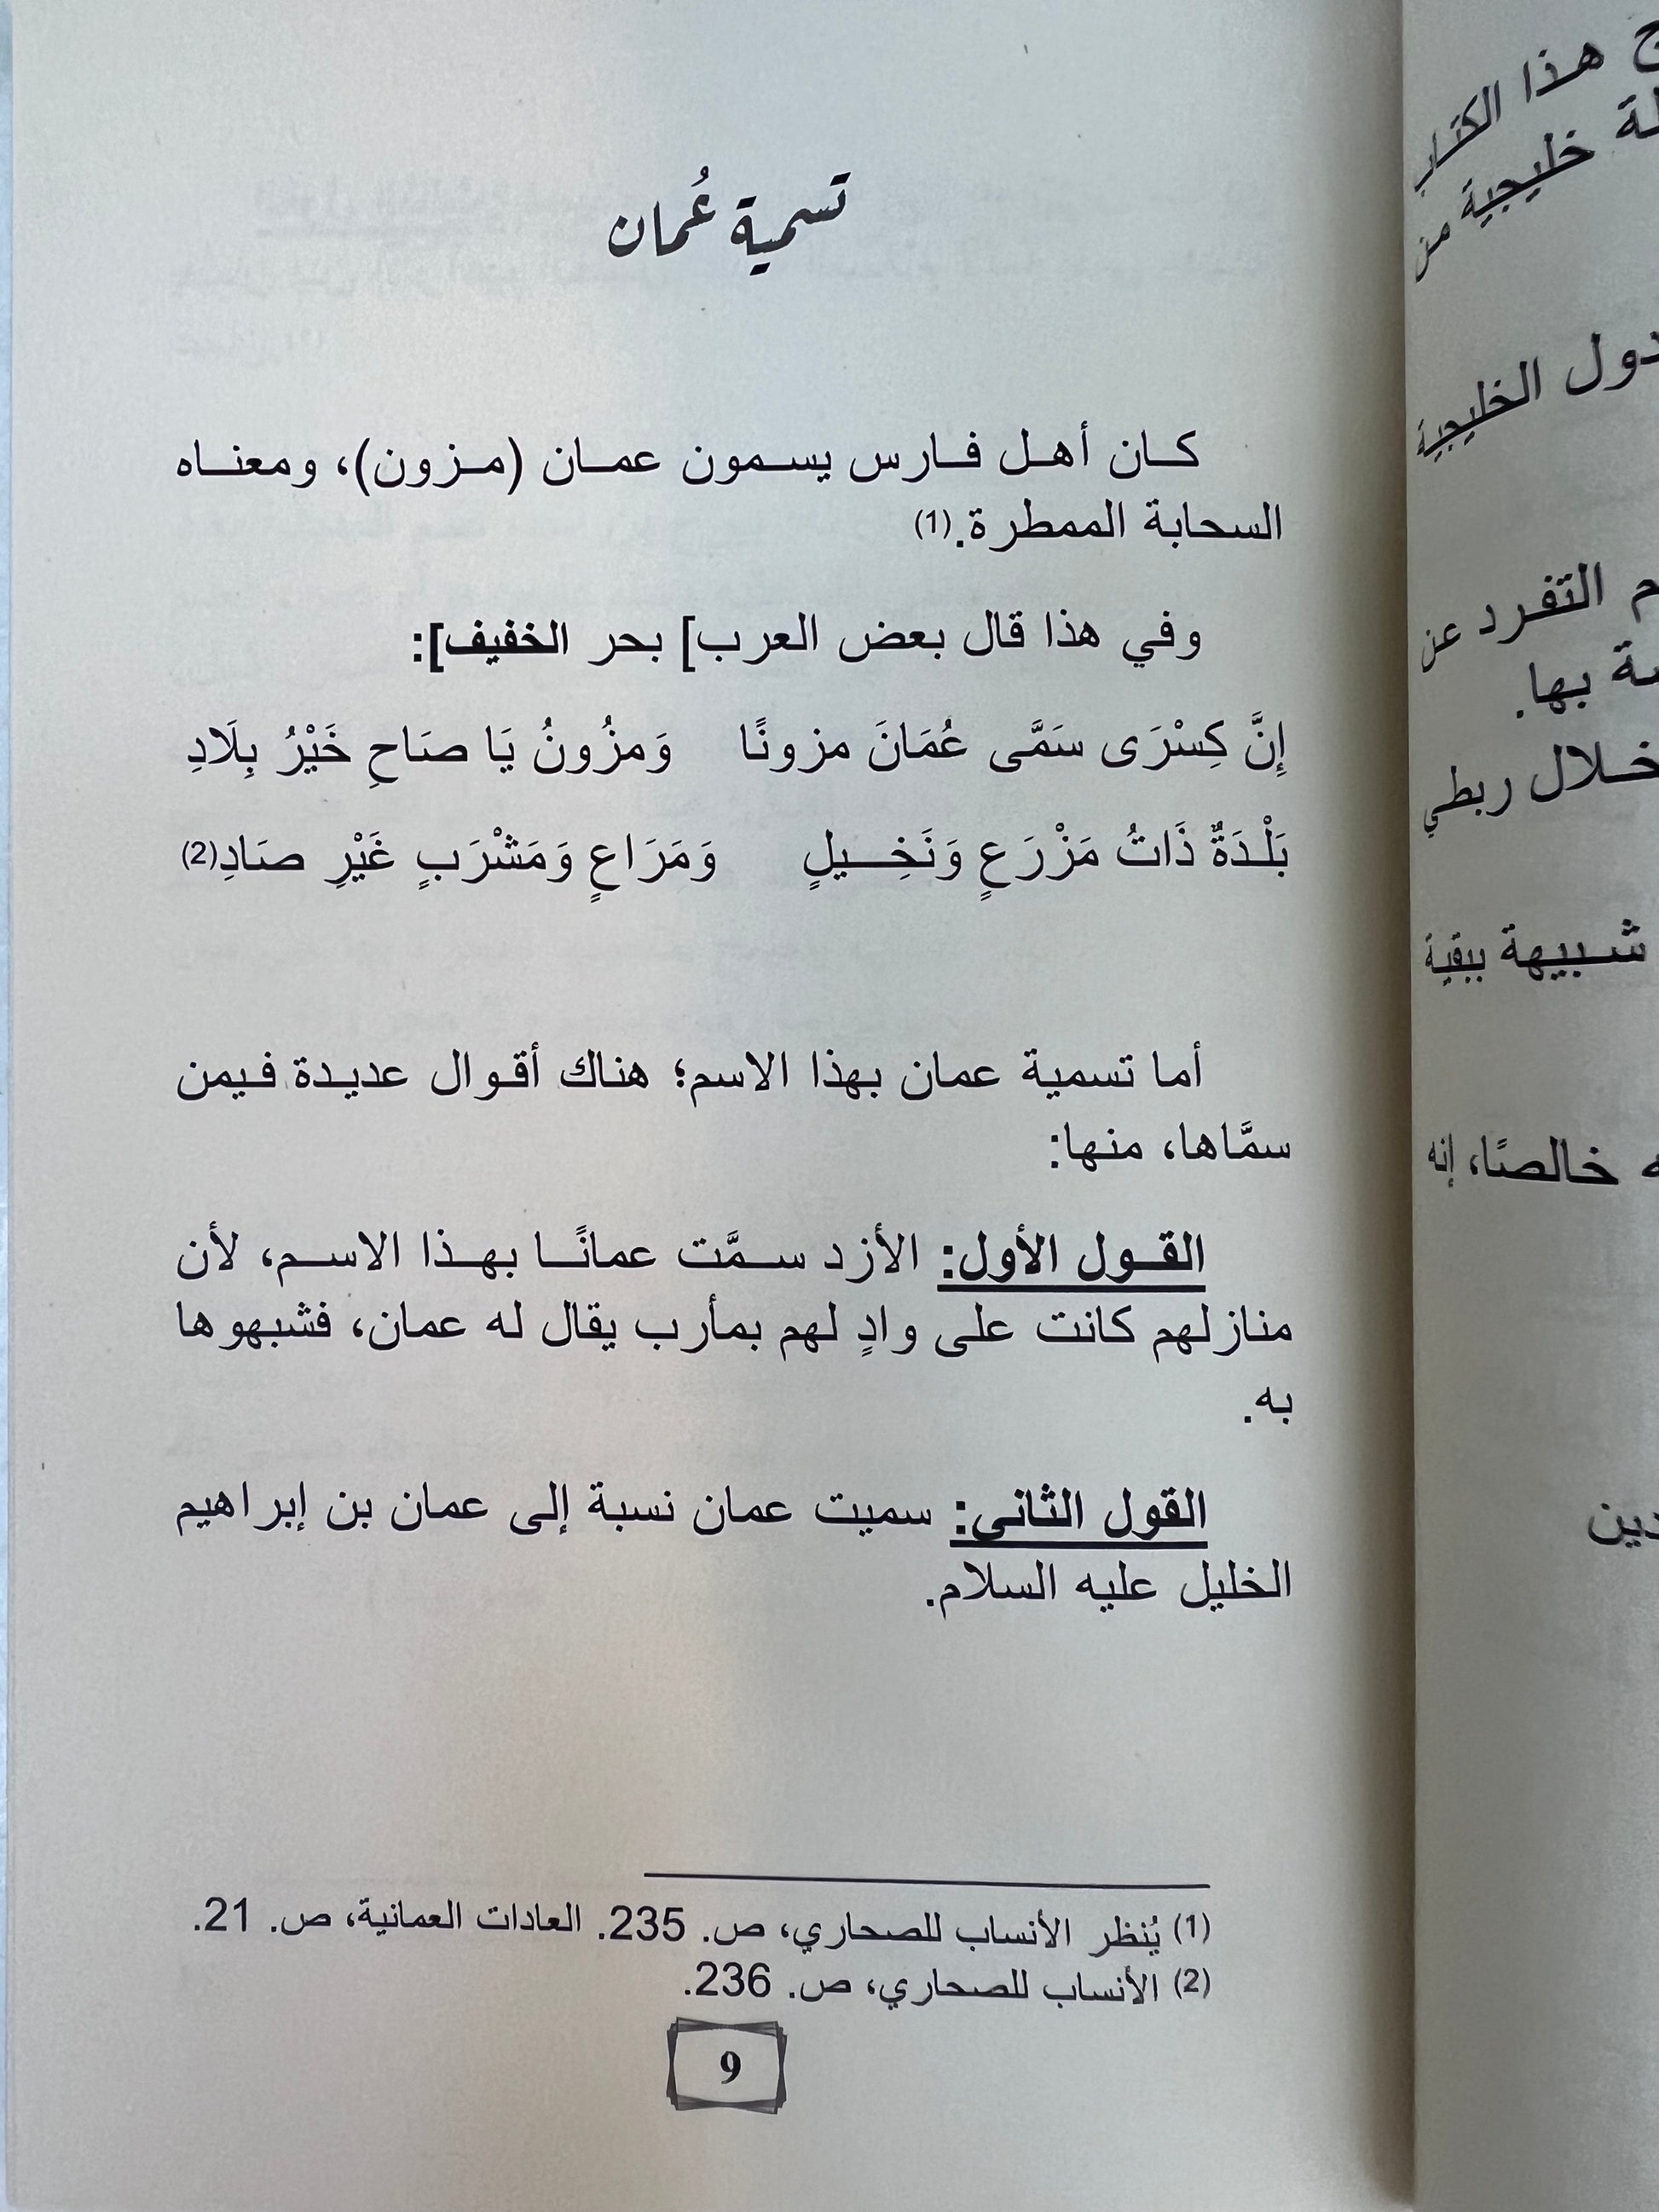 تسمية عُمان
كان أهل فارس يسمون عمان (مزون)، ومعناه
السحابة الممطرة.(1)
وفي هذا قال بعض العرب] بحر الخفيف]:
إِنَّ كِسْرَى سَمَّى عُمَانَ مزونًا وَمزُونُ يَا صَاحِ خَيْرُ بِلَادِ
بَلْدَةٌ ذَاتُ مَزْرَعٍ وَنَخِيلٍ وَمَرَاعٍ وَمَشْرَبٍ غَيْرِ صَادِ(2)
أما تسمية عمان بهذا الاسم؛ هناك أقوال عديدة فيمن
سمَّاها، منها:
القول الأول: الأزد سمَّت عمانًا بهذا الاسم، لأن
منازلهم كانت على وادٍ لهم بمأرب يقال له عمان، فشبهوها
به.
القول الثاني: سميت عمان نسبة إلى عمان بن إبراهيم
الخليل عليه السلام.
(1) يُنظر الأنساب للصحاري، ص. 235. العادات العمانية، ص. 21.
(2) الأنساب للصحاري، ص. 236.
9
هذا الكتاب
خليجية من
دول الخليجية
التفرد عن
بها.
خلال ربطي
شبيهة ببقية
خالصًا، إنه